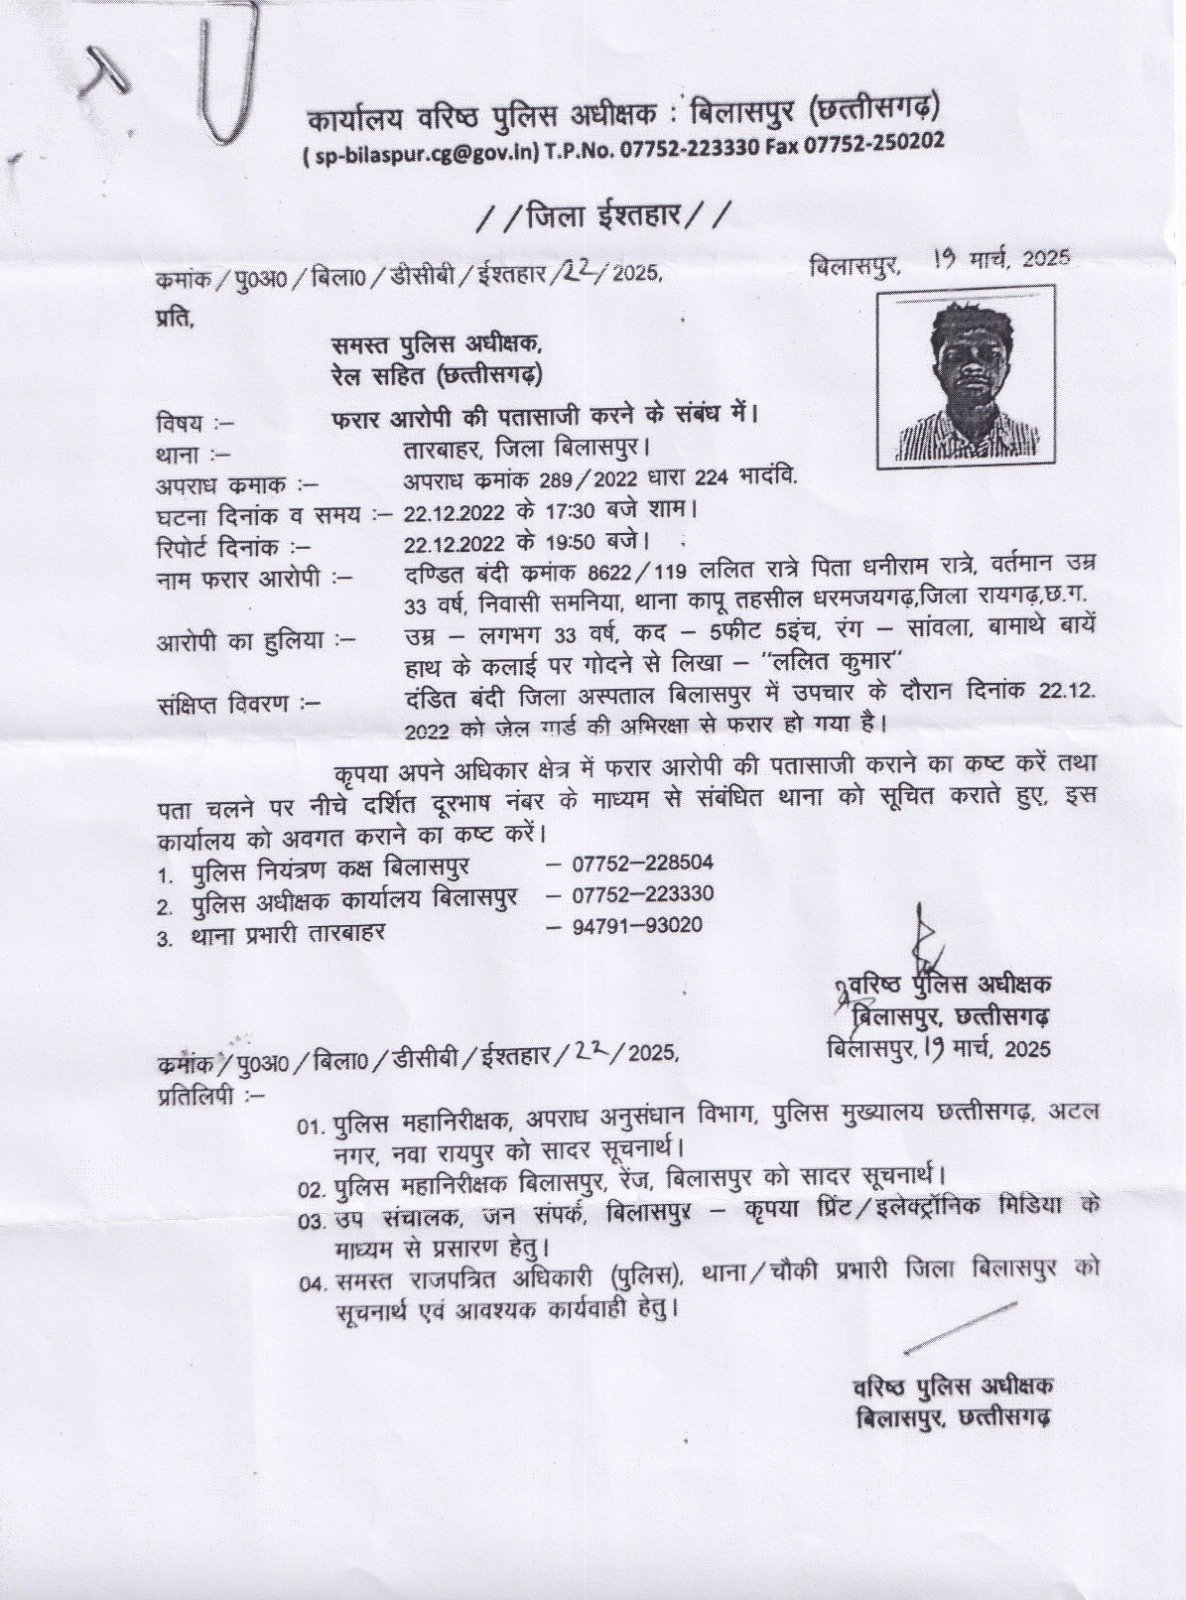 कार्यालय वरिष्ठ पुलिस अधीक्षक : बिलासपुर (छत्तीसगढ़)
( sp-bilaspur.cg@gov.in) T.P.No. 07752-223330 Fax 07752-250202
//जिला ईश्तहार//
कमांक/पु0अ0/बिला0/डीसीबी/ईश्तहार/22/2025, बिलासपुर, 19 मार्च, 2025
प्रति,
समस्त पुलिस अधीक्षक,
रेल सहित (छत्तीसगढ़)
विषय :– फरार आरोपी की पतासाजी करने के संबंध में।
थाना :– तारबाहर, जिला बिलासपुर।
अपराध कमाक :– अपराध कमांक 289/2022 धारा 224 भादंवि.
घटना दिनांक व समय :– 22.12.2022 के 17:30 बजे शाम।
रिपोर्ट दिनांक :– 22.12.2022 के 19:50 बजे।
नाम फरार आरोपी :– दण्डित बंदी कमांक 8622/119 ललित रात्रे पिता धनीराम रात्रे, वर्तमान उम्र
33 वर्ष, निवासी समनिया, थाना कापू तहसील धरमजयगढ़,जिला रायगढ़,छ.ग.
आरोपी का हुलिया :– उम्र – लगभग 33 वर्ष, कद – 5फीट 5इंच, रंग – सांवला, बामाथे बायें
हाथ के कलाई पर गोदने से लिखा – "ललित कुमार"
संक्षिप्त विवरण :– दंडित बंदी जिला अस्पताल बिलासपुर में उपचार के दौरान दिनांक 22.12.
2022 को जेल गार्ड की अभिरक्षा से फरार हो गया है।
कृपया अपने अधिकार क्षेत्र में फरार आरोपी की पतासाजी कराने का कष्ट करें तथा
पता चलने पर नीचे दर्शित दूरभाष नंबर के माध्यम से संबंधित थाना को सूचित कराते हुए, इस
कार्यालय को अवगत कराने का कष्ट करें।
1. पुलिस नियंत्रण कक्ष बिलासपुर – 07752–228504
2. पुलिस अधीक्षक कार्यालय बिलासपुर – 07752–223330
3. थाना प्रभारी तारबाहर – 94791–93020
वरिष्ठ पुलिस अधीक्षक
बिलासपुर, छत्तीसगढ़
कमांक/पु0अ0/बिला0/डीसीबी/ईश्तहार/22/2025, बिलासपुर, 19 मार्च, 2025
प्रतिलिपी :–
01. पुलिस महानिरीक्षक, अपराध अनुसंधान विभाग, पुलिस मुख्यालय छत्तीसगढ़, अटल
नगर, नवा रायपुर को सादर सूचनार्थ।
02. पुलिस महानिरीक्षक बिलासपुर, रेंज, बिलासपुर को सादर सूचनार्थ।
03. उप संचालक, जन संपर्क, बिलासपुर – कृपया प्रिंट/इलेक्ट्रॉनिक मिडिया के
माध्यम से प्रसारण हेतु।
04. समस्त राजपत्रित अधिकारी (पुलिस), थाना/चौकी प्रभारी जिला बिलासपुर को
सूचनार्थ एवं आवश्यक कार्यवाही हेतु।
वरिष्ठ पुलिस अधीक्षक
बिलासपुर, छत्तीसगढ़